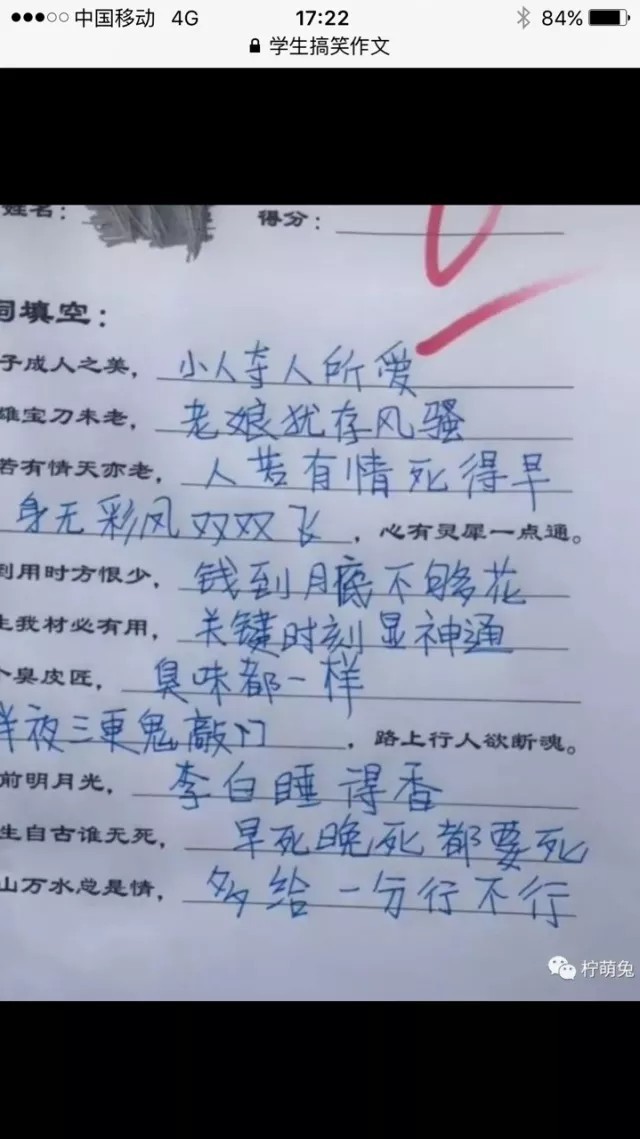 中国移动 4G 17:22 84%
学生搞笑作文
姓名： 得分：
词填空：
子成人之美，小人夺人所爱
雄宝刀未老，老娘犹存风骚
若有情天亦老，人若有情死得早
身无彩凤双双飞，心有灵犀一点通。
到用时方恨少，钱到月底不够花
生我材必有用，关键时刻显神通
个臭皮匠，臭味都一样
半夜三更鬼敲门，路上行人欲断魂。
前明月光，李白睡得香
生自古谁无死，早死晚死都要死
山万水总是情，多给一分行不行
柠萌兔